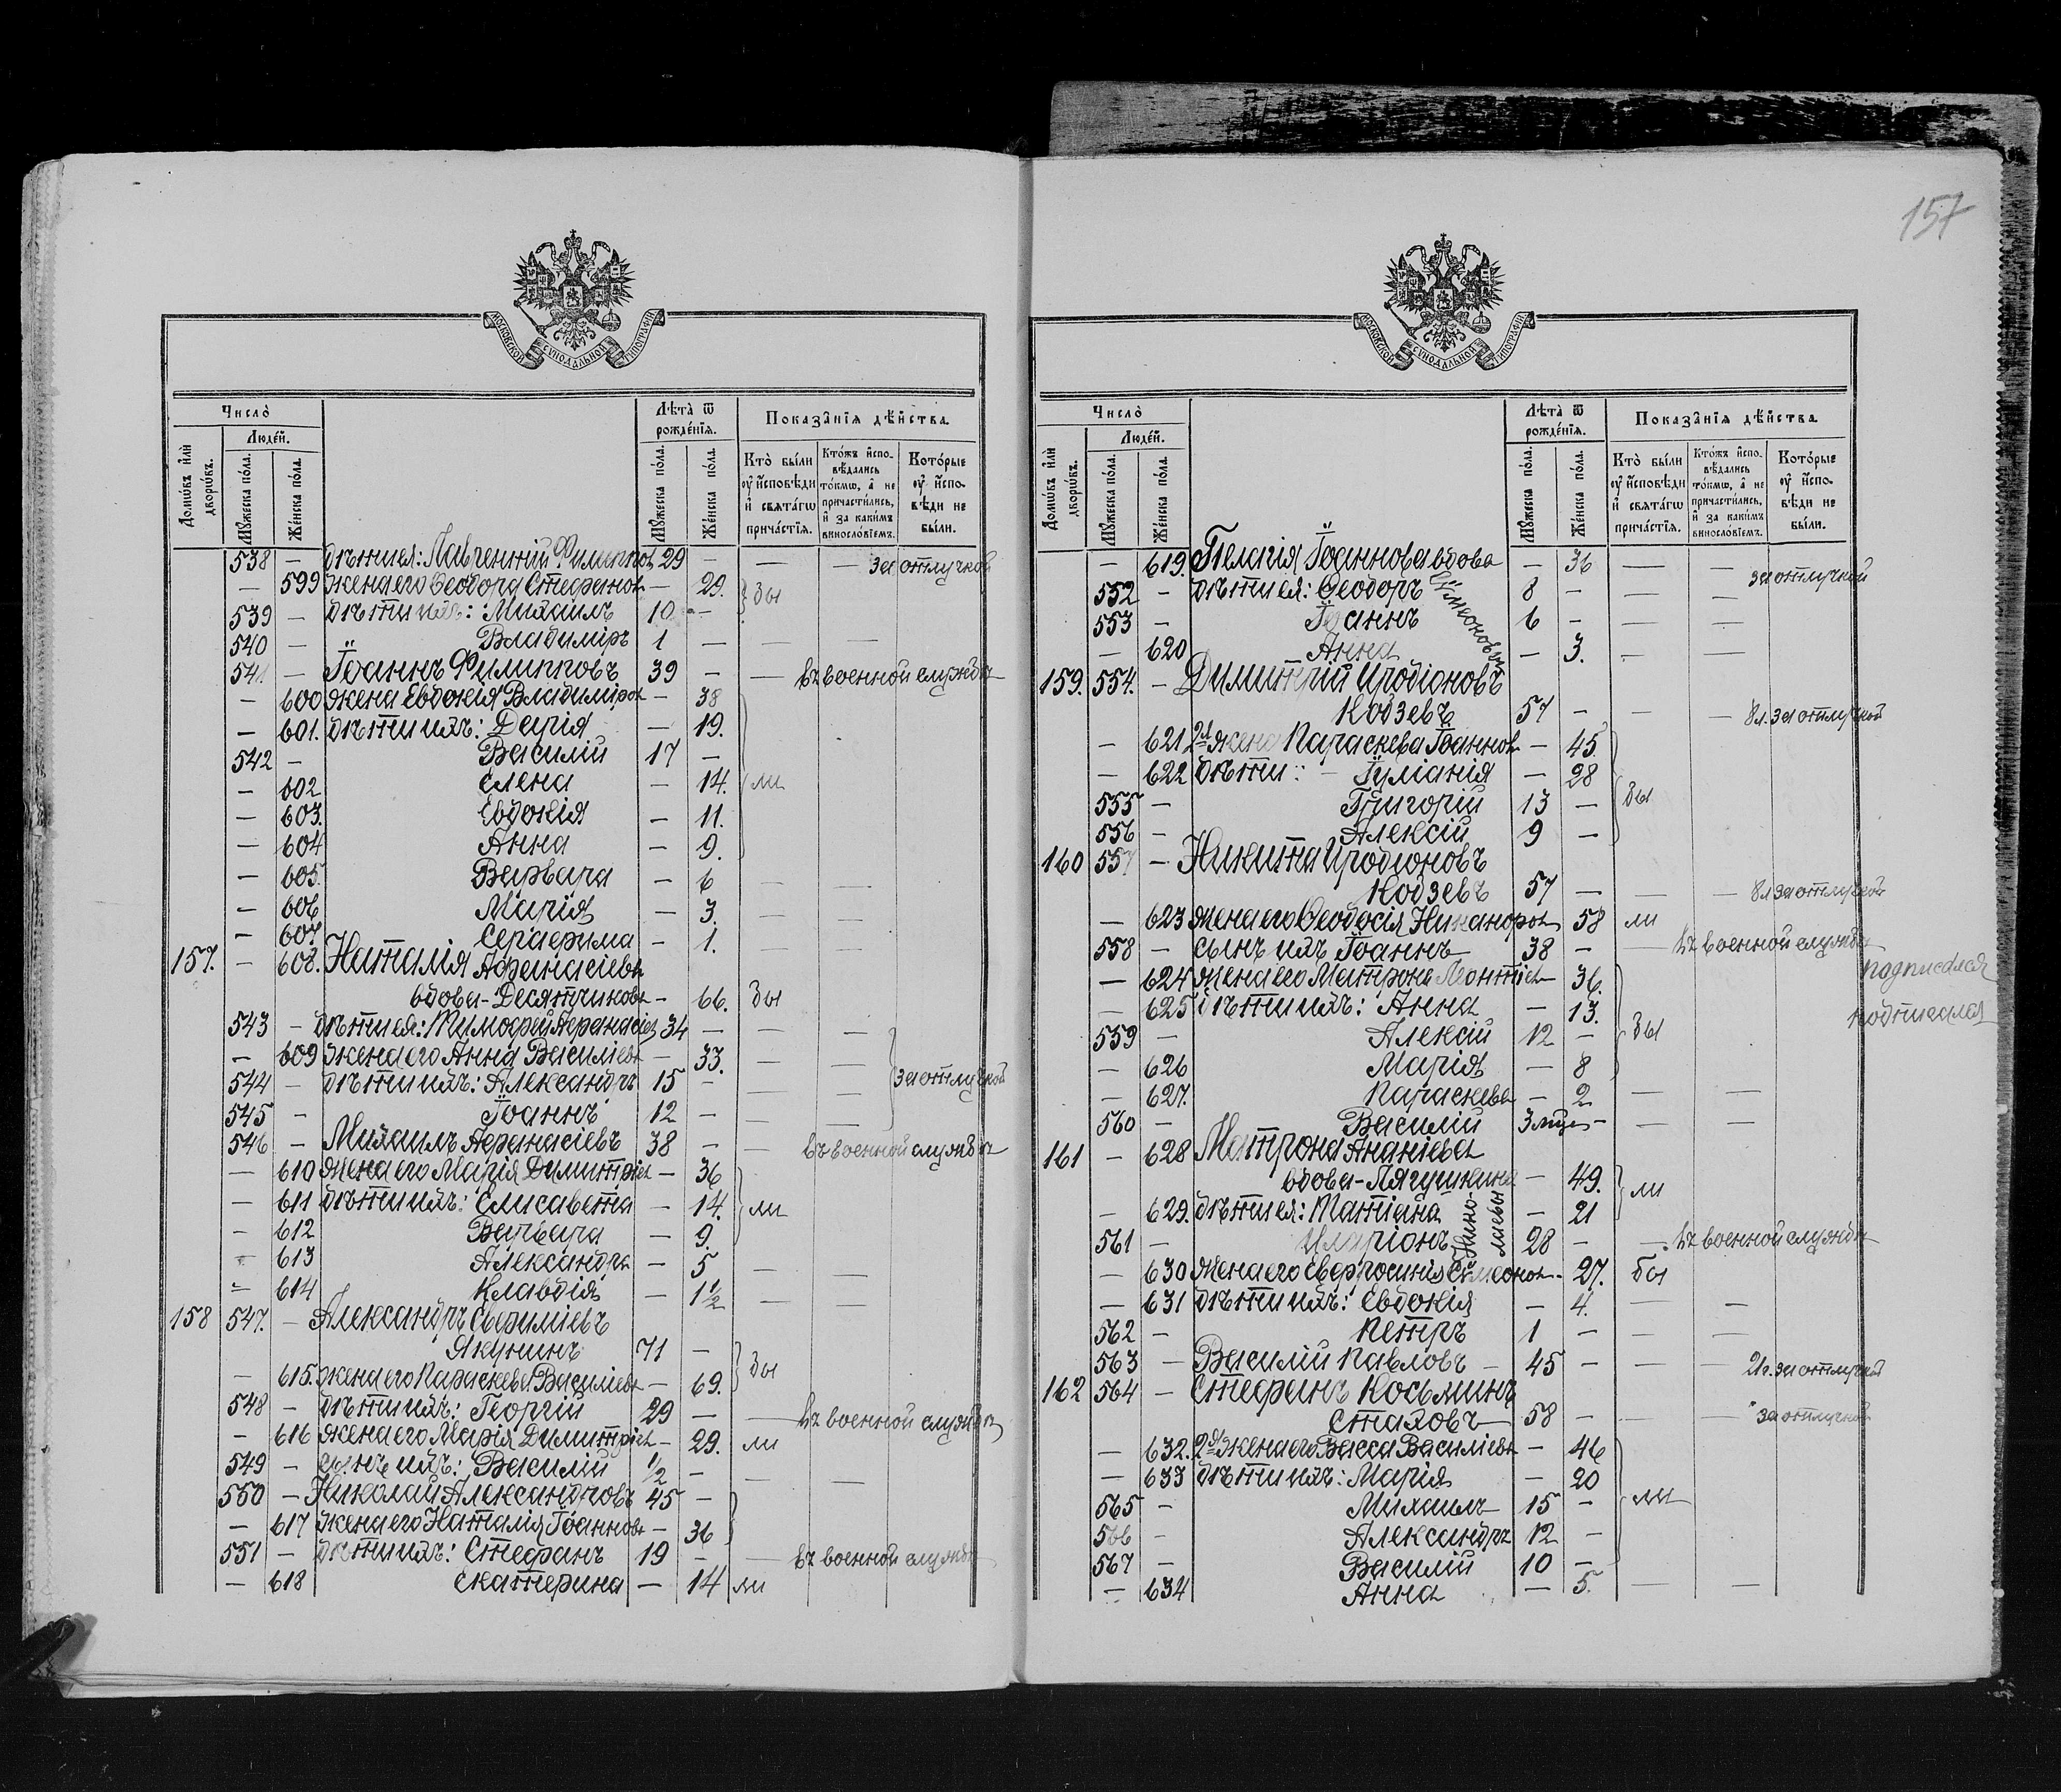 157
МОСКОВСКОЙ СѴНОДАЛЬНОЙ ТИПОГРАФІИ
Число̀
Людéй.
Домώвъ и҆лѝ дворώвъ.
Мꙋ́жеска по́ла.
Же́нска по́ла.
Лѣ́та ѿ рождéнїѧ.
Мꙋ́жеска по́ла.
Же́нска по́ла.
Показа̑нїѧ дѣ́йства
Кто̀ бы́ли ᲂу҆ и҆сповѣ́ди и҆ свѧта́гѡ прича́стїѧ.
Кто́жъ и҆спо-вѣ́дались то́кмѡ, а҆ не причасти́лись, и҆ за каки́мъ винослóвїемъ.
Кото́рые ᲂу҆ и҆спо-вѣ́ди не бы́ли.
538 — дѣти ея: Лаврентій Филиппов 29 — — — за отлучкой
— 599 жена его Ѳеодора Стефанов — 29. бы
539 — дѣти ихъ: Михаилъ 10 —
540 — Владиміръ 1 — — —
541 — Іоаннъ Филипповъ 39 — — въ военной службѣ
— 600 жена Евдокія Владиміров — 38
— 601. дѣти ихъ: Дарія — 19.
542 — Василій 17 —
— 602 Елена — 14. ли
— 603. Евдокія — 11.
— 604 Анна — 9.
— 605. Варвара — 6 — —
— 606 Марія — 3. — —
— 607 Серафима — 1. — —
157. — 608. Наталія Афанасіева
вдова - Десятчикова — 66. бы
543 — дѣти ея: Тимофей Афанасіев 34 — — —
— 609 жена его Анна Василіев — 33. — —
544 — дѣти ихъ: Александръ 15 — — — за отлучкой
545 — Іоаннъ 12 — — —
546 — Михаилъ Афанасіевъ 38 — — въ военной службѣ
— 610 жена его Марія Димитріев — 36
— 611 дѣти ихъ: Елисавета — 14. ли
— 612 Варвара — 9.
— 613 Александра — 5 — —
— 614 Клавдія — 1½ — —
158 547. — Александръ Евфиміевъ
Якунинъ 71 —
— 615. жена его Параскева Василіев — 69. бы
548 — дѣти ихъ: Георгій 29 — — въ военной службѣ
— 616 жена его Марія Димитріев — 29. ли
549 — сынъ ихъ: Василій ½ — — —
550 — Николай Александровъ 45 —
— 617 жена его Наталія Іоаннов — 36
551 — дѣти ихъ: Стефанъ 19 — — въ военной службѣ
— 618 Екатерина — 14 ли
МОСКОВСКОЙ СѴНОДАЛЬНОЙ ТИПОГРАФІИ
Число̀
Людéй.
Домώвъ и҆лѝ дворώвъ.
Мꙋ́жеска по́ла.
Же́нска по́ла.
Лѣ́та ѿ рождéнїѧ.
Мꙋ́жеска по́ла.
Же́нска по́ла.
Показа̑нїѧ дѣ́йства
Кто̀ бы́ли ᲂу҆ и҆сповѣ́ди и҆ свѧта́гѡ прича́стїѧ.
Кто́жъ и҆спо-вѣ́дались то́кмѡ, а҆ не причасти́лись, и҆ за каки́мъ винослóвїемъ.
Кото́рые ᲂу҆ и҆спо-вѣ́ди не бы́ли.
— 619. Пелагія Іоаннова вдова — 36 — — за отлучкой
552 — дѣти ея: Ѳеодоръ Сѵмеоновы 8 — — —
553 — Іоаннъ 6 — — —
— 620 Анна — 3. — —
159. 554. — Димитрій Иродіоновъ
Кодзевъ 57 — — — 8 л. за отлучкой
— 621 2я жена Параскева Іоаннов — 45.
— 622 дѣти: — Іуліанія — 28
555 — Григорій 13 — бы
556 — Алексій 9 —
160 557 — Никита Иродіоновъ
Кодзевъ 57 — — — 8 л за отлучкой
— 623 жена его Ѳеодосія Никаноров 58 ли
558 — сынъ ихъ Іоаннъ 38 — — въ военной службѣ
— 624 жена его Матрона — 36.
подписался
— 625 дѣти ихъ: Анна — 13.
подписался
559 — Алексій 12 — бы
— 626 Марія — 8
— 627. Параскева — 2 — —
560 — Василій 3 мѣс — — —
161 — 628 Матрона Ананіева
вдова - Лягушкина — 49. ли
— 629. дѣти ея: Татіана Николаевы — 21
561 — Иларіонъ 28 — — въ военной службѣ
— 630 жена его Евфросинія Сѵмеонов — 27. бы
— 631 дѣти ихъ: Евдокія — 4. — —
562 — Петръ 1 — — —
563 — Василій Павловъ — 45 — — — 2 г. за отлучкой
162 564 — Стефанъ Косьминъ
Стаховъ 58 — — — за отлучкой
— 632. 2я жена его Васса Василіев — 46
— 633 дѣти ихъ: Марія — 20
565 — Михаилъ 15 — ли
566 — Александръ 12 —
567 — Василій 10 —
— 634 Анна — 5. — —